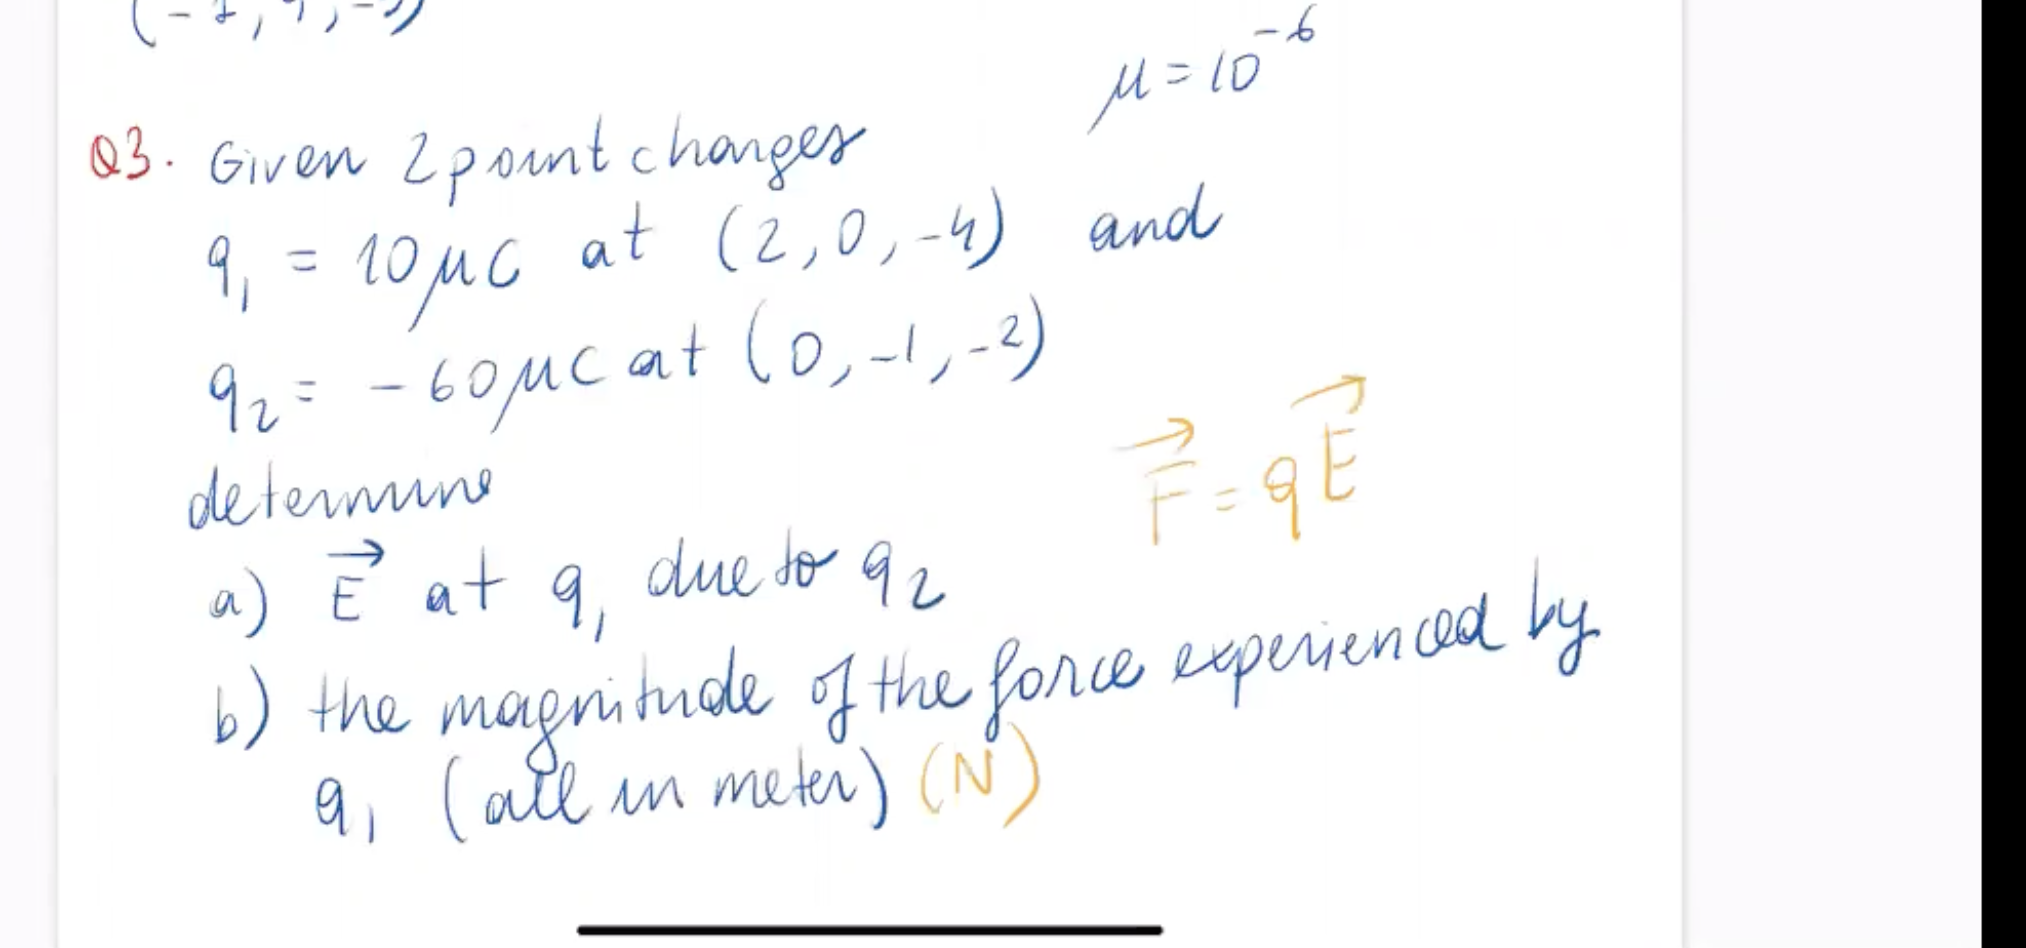 μ = 10⁻⁶
Q3. Given 2 point charges
q₁ = 10 μC at (2, 0, -4) and
q₂ = -60 μC at (0, -1, -2)
determine
F⃗ = qE⃗
a) E⃗ at q₁ due to q₂
b) the magnitude of the force experienced by
q₁ (all in meter) (N)